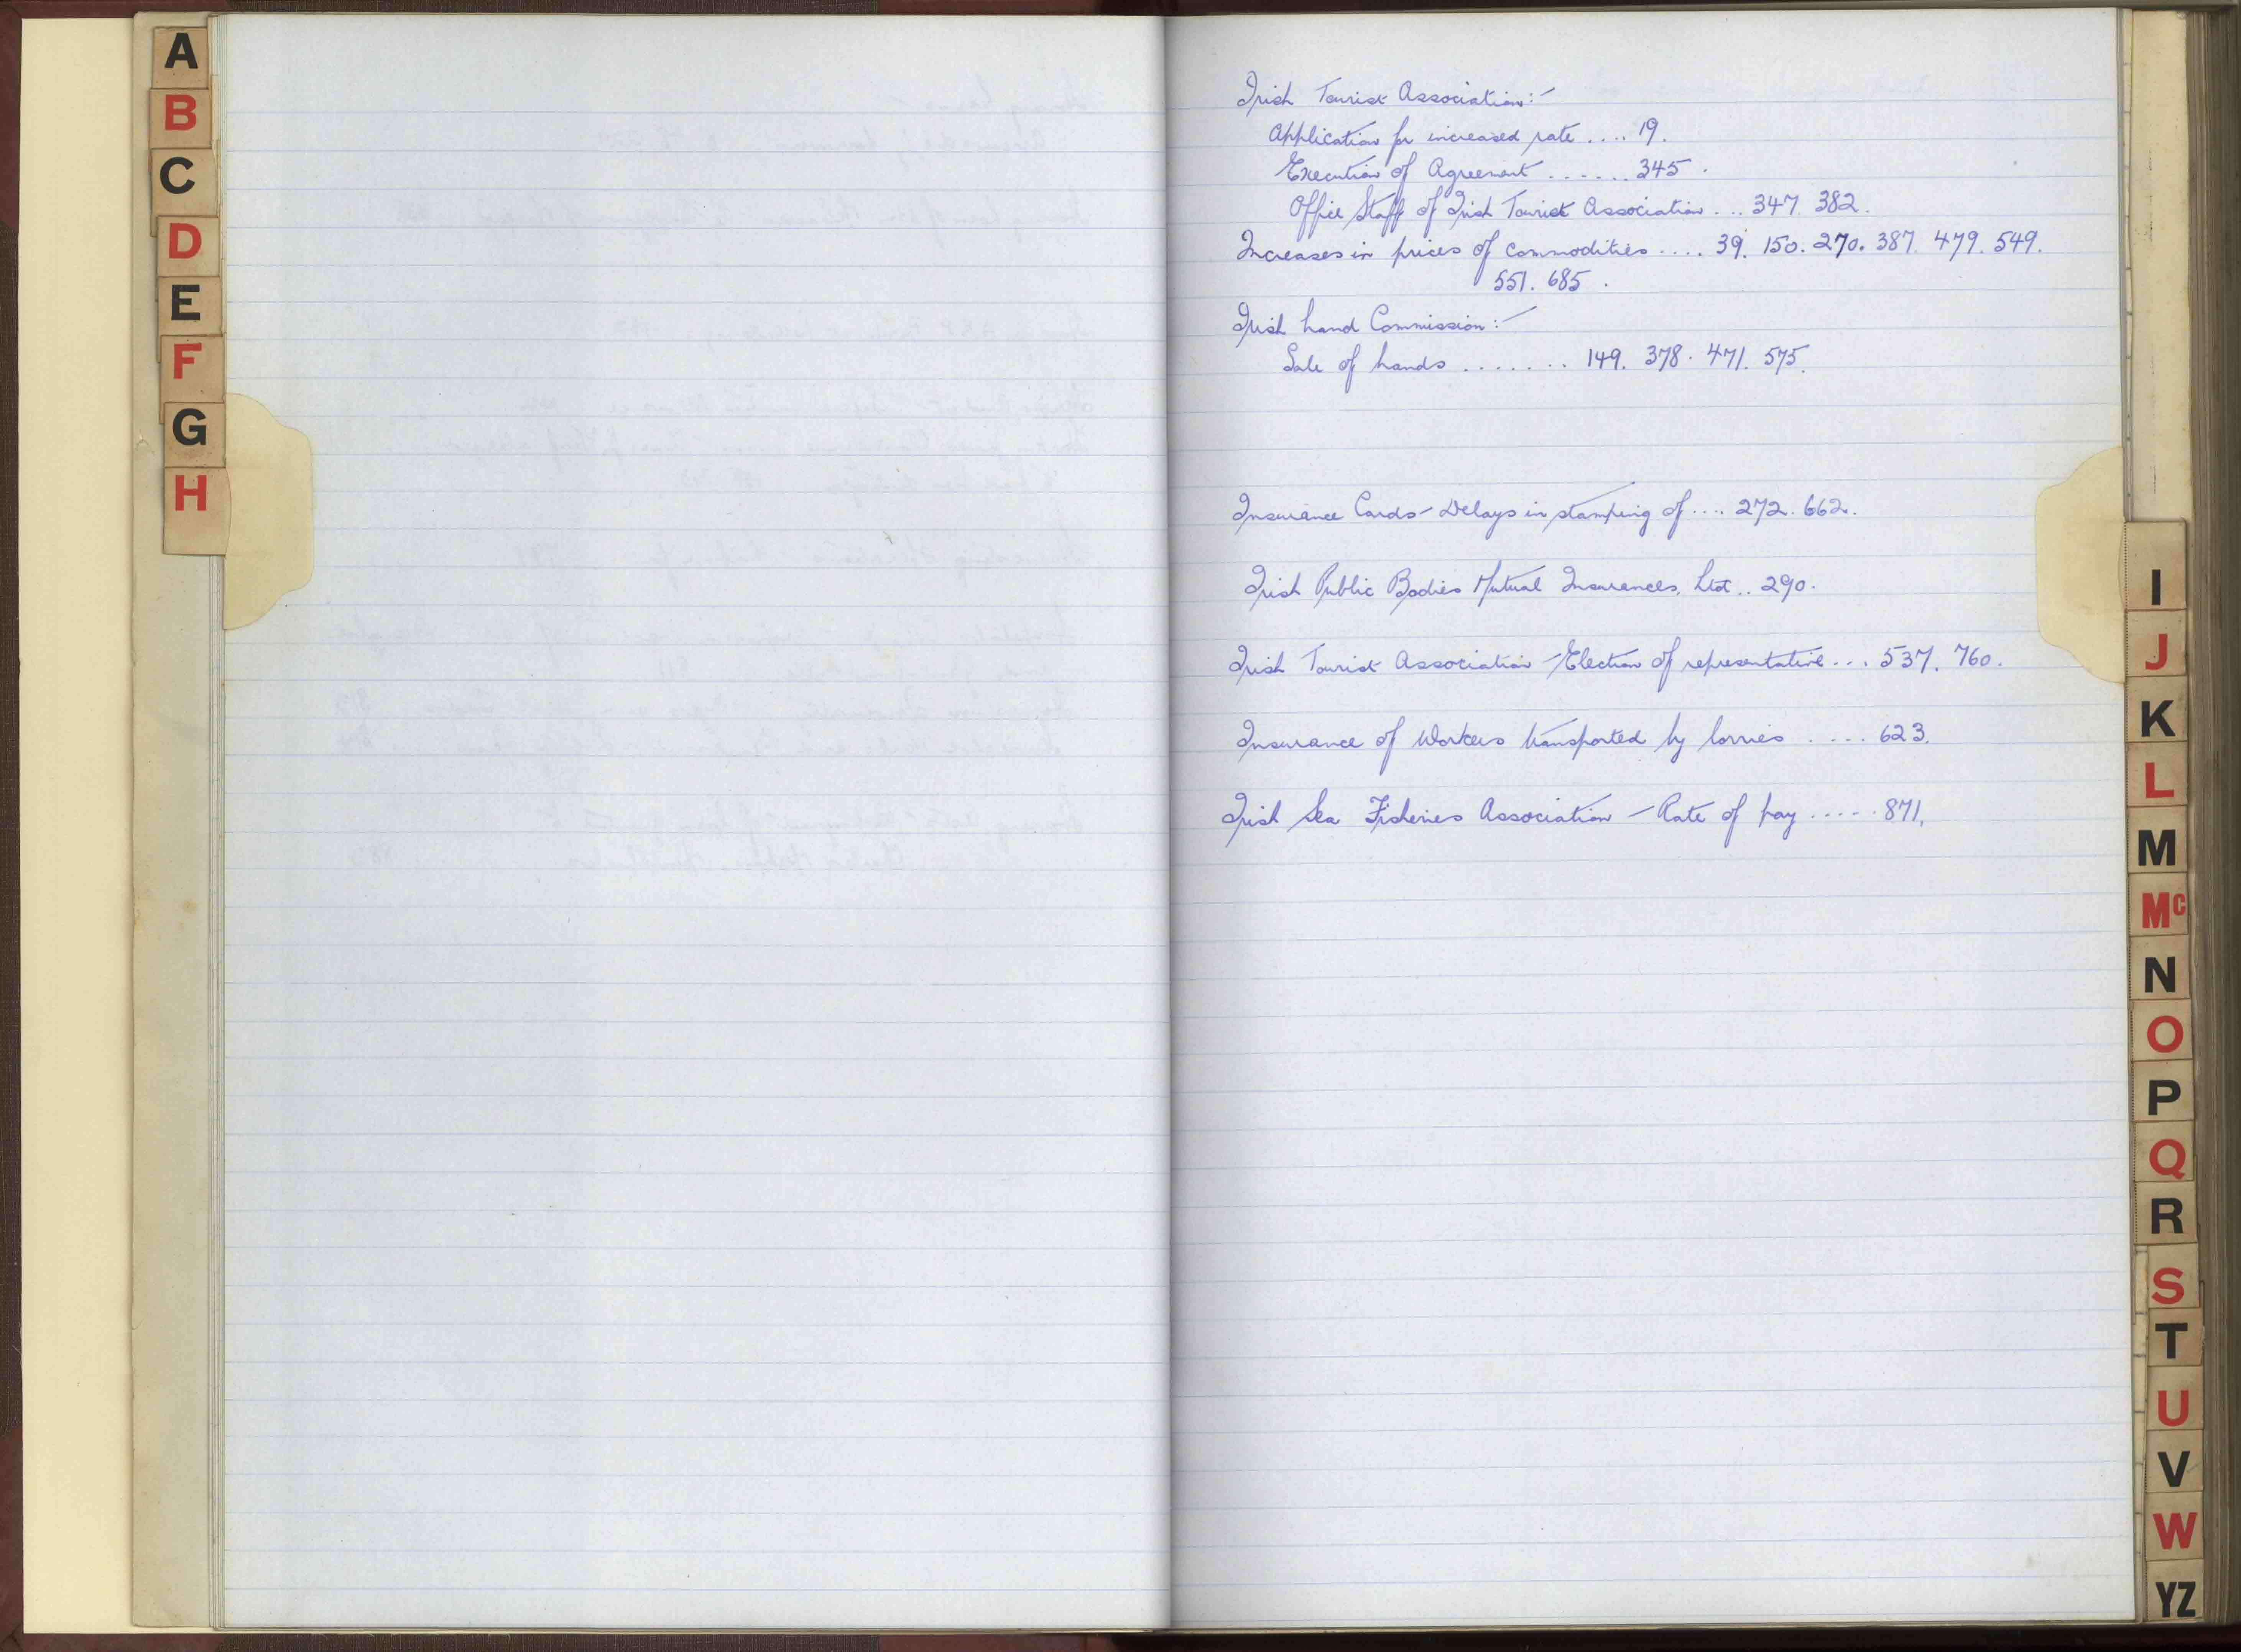 A
B
C
D
E
F
G
H
Irish Tourist Association:-
Application for increased rate .... 19.
Execution of Agreement ...... 345.
Office Staff of Irish Tourist Association ... 347. 382.
Increases in prices of commodities .... 39. 150. 270. 387. 479. 549.
551. 685.
Irish Land Commission:-
Sale of Lands ....... 149. 378. 471. 575.
Insurance Cards - Delays in stamping of .... 272. 662.
Irish Public Bodies Mutual Insurances, Ltd .. 290.
Irish Tourist Association - Election of representative ... 537. 760.
Insurance of Workers transported by lorries .... 623.
Irish Sea Fisheries Association - Rate of pay ..... 871.
I
J
K
L
M
Mc
N
O
P
Q
R
S
T
U
V
W
YZ